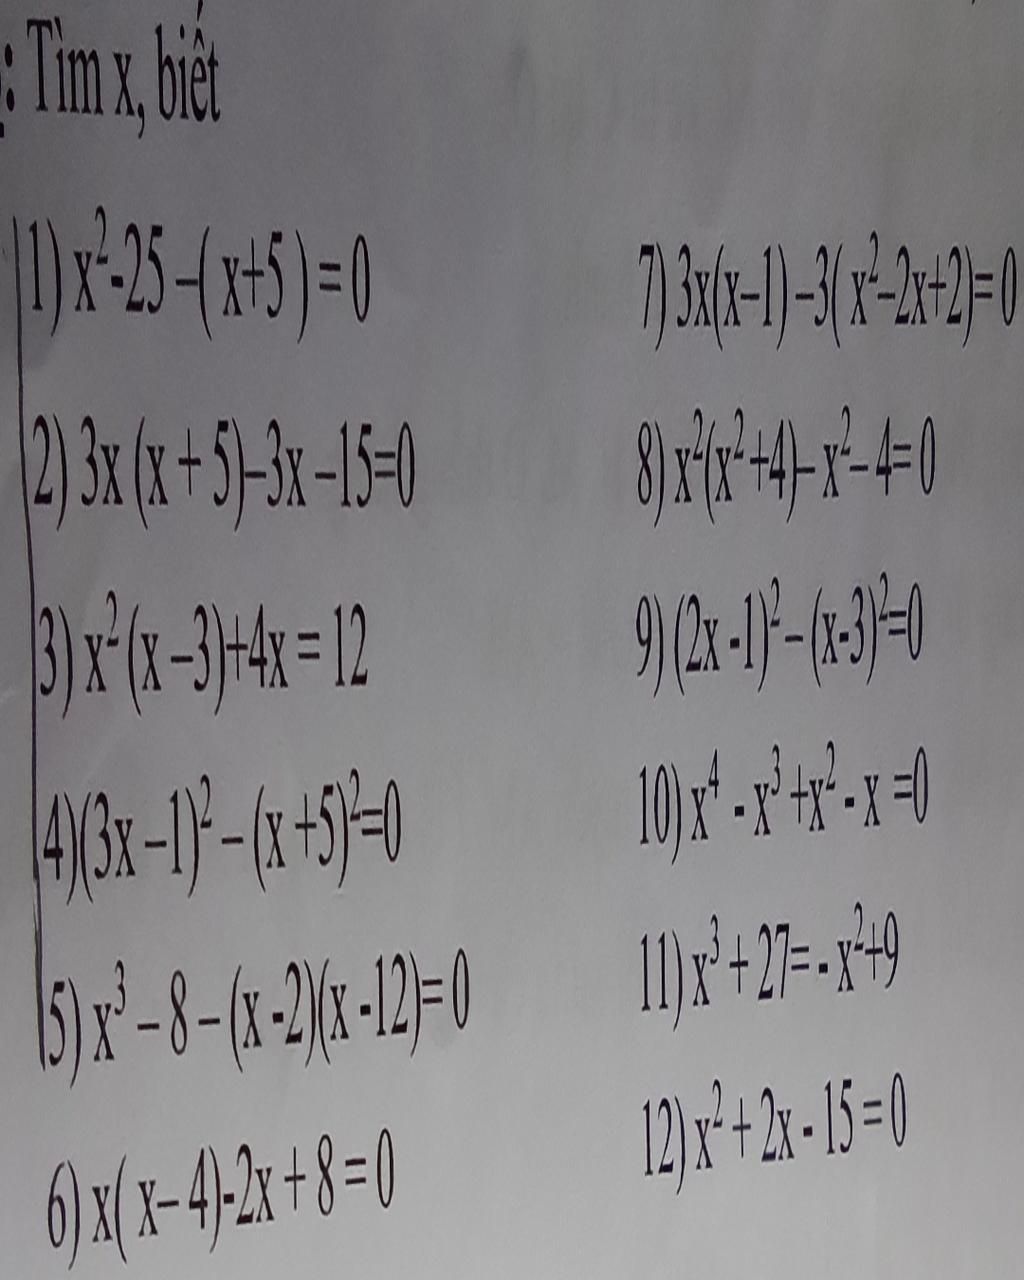 : Tìm x, biết
1) x²-25 –( x+5 ) = 0
2) 3x (x + 5)–3x –15=0
3) x² (x –3)+4x = 12
4)(3x –1)² – (x +5)²=0
5) x³ – 8 – (x -2)(x -12)= 0
6) x( x– 4)-2x + 8 = 0
7) 3x(x–1) –3( x²–2x+2)= 0
8) x²(x²+4)– x²– 4= 0
9) (2x -1)² – (x-3)²=0
10) x⁴ - x³ +x² - x =0
11) x³ + 27= - x²+9
12) x² + 2x - 15 = 0